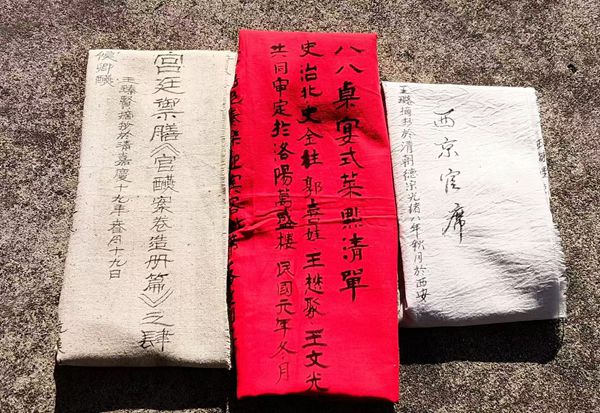 宫廷禦膳《官醼案卷造册篇》之肆
王臻賢摘抄於清嘉慶十九年叁月十九日
侯卿醼
八八桌宴式菜點清單
史治北 史全柱 郭喜娃 王越聚 王文光
共同审定於洛陽萬盛樓 民國元年冬月
西京官席
摘抄於清朝德宗光緒八年秋月於西安